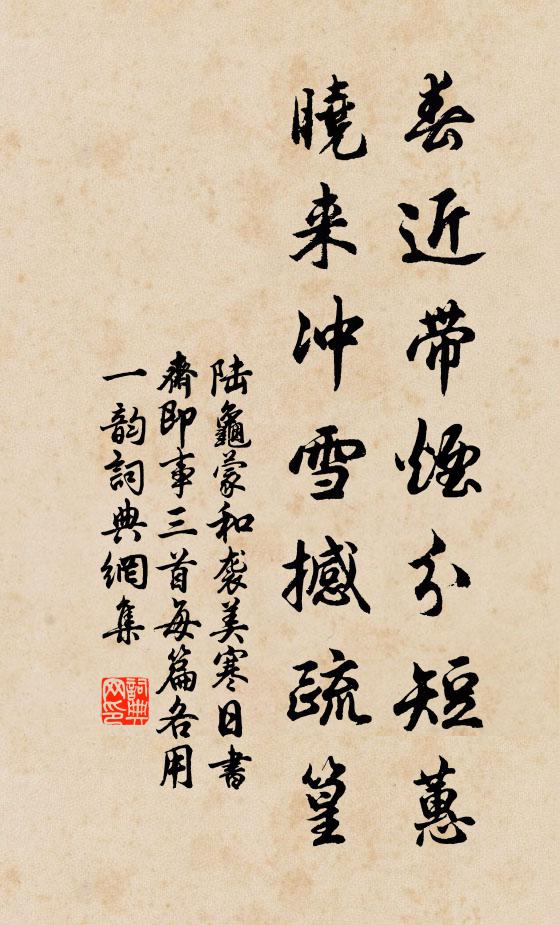 春近带煙分短蕙
曉来冲雪撼疏篁
陆龜蒙和袭美寒日书
齋即事三首每篇各用
一韵詞典網集
詞典网印